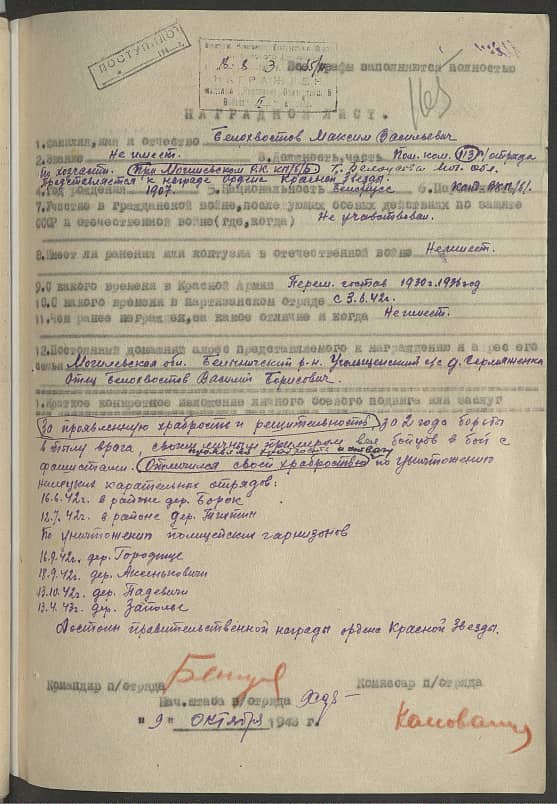 ПОСТУПЛО
Все графы заполняются полностью
НАГРАЖДЕН
НАГРАДНОЙ ЛИСТ.
1. Фамилия, имя и отчество Белохвостов Максим Васильевич
2. Звание Не имеет. 3. Должность, часть Пом. ком. 113 п/отряда
При Могилевском РК КП/б/Б г. Белоусова Мог. обл.
представляется к награде Ордена Красной Звезды.
4. Год рождения 1907. 5. Национальность Белорусс Канд. ВКП/б/.
7. Участие в Гражданской войне, последующих боевых действиях по защите
СССР и отечественной войне (где, когда) Не участвовал.
8. Имеет ли ранения или контузия в отечественной войне Не имеет.
9. С какого времени в Красной Армии Перем. состав 1930г. 1936 год
10. С какого времени в партизанском отряде с 3.6.42г.
11. Чем ранее награжден, за какое отличие и когда Не имеет.
12. Постоянный домашний адрес представляемого к награждению и адрес его
семьи Могилевская обл. Белыничский р-н. с/с д.
Отец Белохвостов Василий Борисович.
1. Краткое конкретное изложение личного боевого подвига или заслуг
За проявленную храбрость и решительность за 2 года борьбы
в тылу врага, своим личным примером вел бойцов в бой с
фашистами. Отличился своей храбростью по уничтожению
немецких карательных отрядов:
16.6.42г. в районе дер. Борок
12.7.42г. в районе дер. Техтин
По уничтожению полицейских гарнизонов
16.9.42г. дер. Городище
18.9.42г. дер. Аксеньковичи
13.10.42г. дер. Падевичи
13.4.43г. дер. Заполье
Достоин правительственной награды ордена Красной Звезды.
Командир п/отряда Комиссар п/отряда
Нач. штаба п/отряда
"9" октября 1943 г.